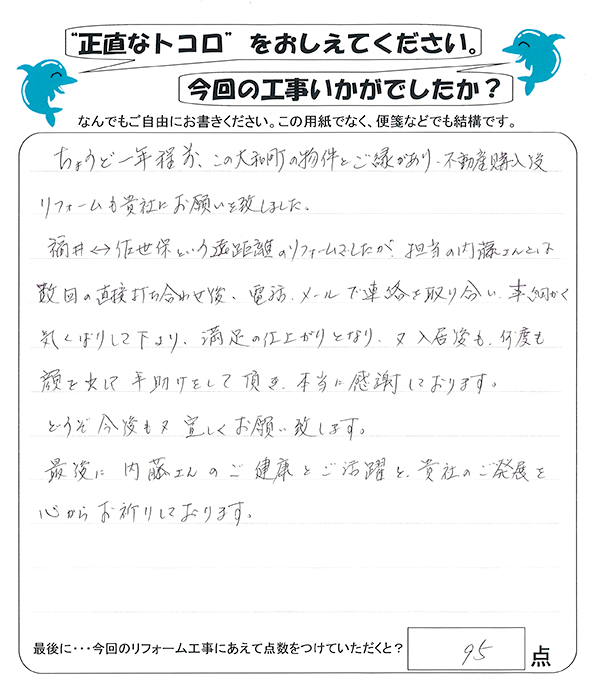 “正直なトコロ”をおしえてください。
今回の工事いかがでしたか？
なんでもご自由にお書きください。この用紙でなく、便箋などでも結構です。
ちょうど一年程前、この大和町の物件とご縁があり、不動産購入後
リフォームも貴社にお願いを致しました。
福井↔佐世保という遠距離のリフォームでしたが、担当の内藤さんとは
数回の直接打ち合わせ後、電話、メールで連絡を取り合い、事細かく
気くばりして下より、満足の仕上がりとなり、又入居後も、何度も
顔を出して手助けをして頂き、本当に感謝しております。
どうぞ今後も又宜しくお願い致します。
最後に内藤さんのご健康とご活躍と、貴社のご発展を
心からお祈りしております。
最後に・・・今回のリフォーム工事にあえて点数をつけていただくと？ 95 点